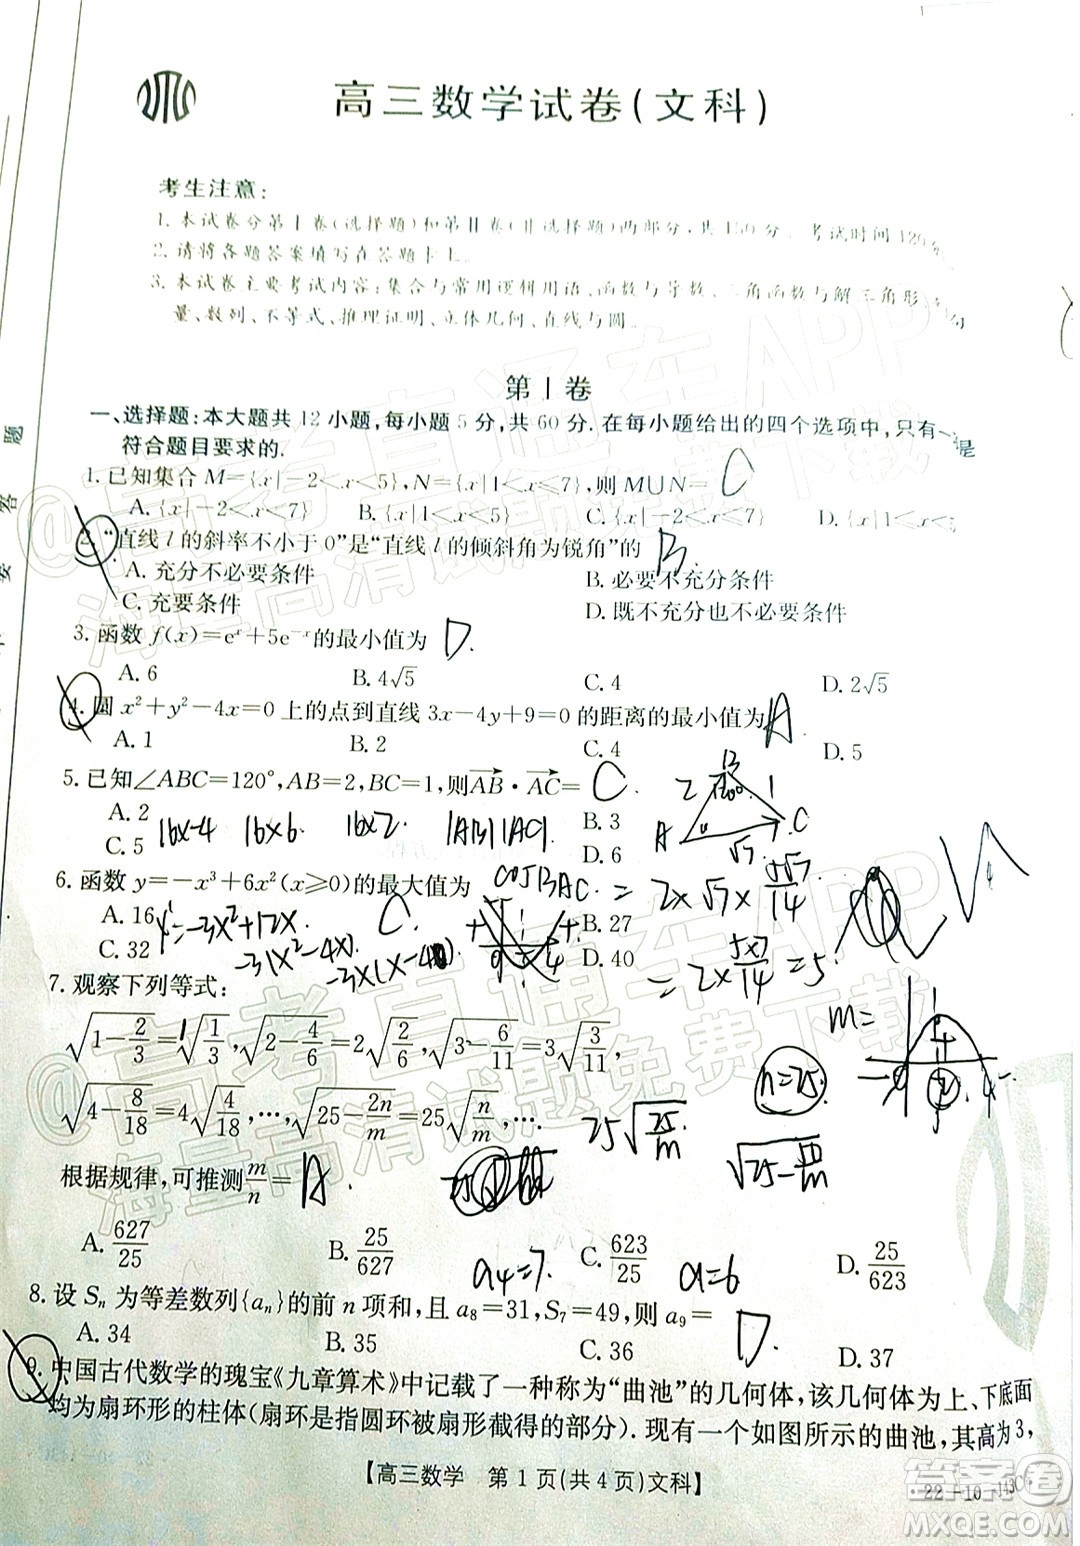 高三数学试卷(文科)
考生注意:
1. 本试卷分第Ⅰ卷(选择题)和第Ⅱ卷(非选择题)两部分,共150分。考试时间120分
2. 请将各题答案填写在答题卡上。
3. 本试卷主要考试内容:集合与常用逻辑用语、函数与导数、三角函数与解三角形、
量、数列、不等式、推理证明、立体几何、直线与圆。
第Ⅰ卷
一、选择题:本大题共12小题,每小题5分,共60分.在每小题给出的四个选项中,只有一
是
符合题目要求的.
1.已知集合 M={x|-2<x<5},N={x|1<x<7},则 M∪N= C
A.{x|-2<x<7} B.{x|1<x<5} C.{x|-2<x<7} D.{x|1<x<
2.“直线 l 的斜率不小于0”是“直线 l 的倾斜角为锐角”的 B
A. 充分不必要条件 B. 必要不充分条件
C. 充要条件 D. 既不充分也不必要条件
3. 函数 f(x)=e^x+5e^-x的最小值为 D.
A. 6 B. 4√5 C. 4 D. 2√5
4. 圆 x²+y²-4x=0 上的点到直线 3x-4y+9=0 的距离的最小值为 A
A. 1 B. 2 C. 4 D. 5
5. 已知∠ABC=120°,AB=2,BC=1,则AB·AC= C
A. 2 B. 3
C. 5 D. 6
16×-4 16×6. 16×2. |AB||AC|
2 B 120° 1 A C √7
6. 函数 y=-x³+6x²(x≥0)的最大值为 C.
A. 16 B. 27
C. 32 D. 40
y'=-3x²+12x.
-3(x²-4x)
-3x(x-4)
cosBAC.
=2×√7×5√7/14
=2×5×7/14=5
7. 观察下列等式:
√(1-2/3)=1√(1/3),√(2-4/6)=2√(2/6),√(3-6/11)=3√(3/11),
√(4-8/18)=4√(4/18),…,√(25-2n/m)=25√(n/m),…,
m=
n=25.
25√(25/m)
√(25-50/m)
根据规律,可推测m/n= A.
A. 627/25 B. 25/627 C. 623/25 D. 25/623
a4=7. d=6
8. 设 Sn 为等差数列{an}的前 n 项和,且 a8=31,S7=49,则 a9= D.
A. 34 B. 35 C. 36 D. 37
9. 中国古代数学的瑰宝《九章算术》中记载了一种称为“曲池”的几何体,该几何体为上、下底面
均为扇环形的柱体(扇环是指圆环被扇形截得的部分).现有一个如图所示的曲池,其高为3,
【高三数学 第1页(共4页)文科】
22-10-143C
答案圈
MXQE.COM
@高考直通车APP
海量高清试题免费下载
@高考直通车APP
海量高清试题免费下载
题
答
要